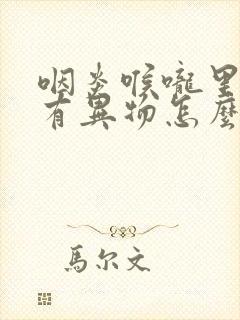 咽炎喉嚨里
有異物怎麼
馬尔文